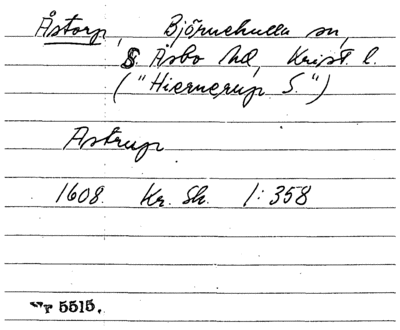 Åstorp, Björnekulla sn,
S. Åsbo hd, Krist. l.
("Hiernerup S.")
Astrup
1608. Kr. Sk. 1:358
5515.